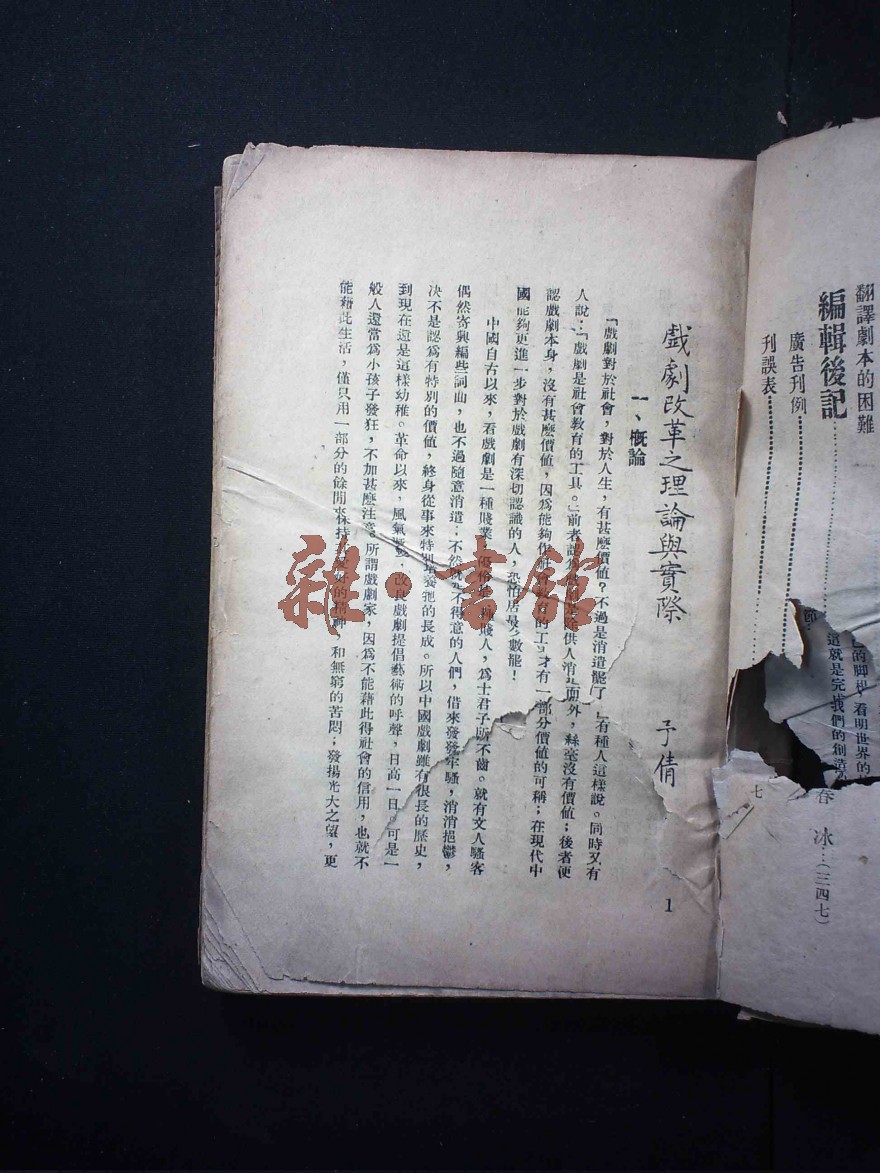 翻譯劇本的困難
編輯後記
廣告刊例
刊誤表
的脚
看明世界的
這就是完我們的創造
七
春 冰…(三四七)
戲劇改革之理論與實際
予倩
1
一、概論
「戲劇對於社會，對於人生，有甚麽價值？不過是消遣罷了」有種人這樣說。同時又有
人說：「戲劇是社會教育的工具。」前者認爲戲供人消面外，絲毫沒有價值；後者便
認戲劇本身，沒有甚麽價值，因爲能夠作社會教育的工才有一部分價值的可稱；在現代中
國能夠更進一步對於戲劇有深切認識的人，恐怕居最少數罷！
中國自古以來，看戲劇是一種賤業，優伶是種賤人，爲士君子所不齒。就有文人騷客
偶然寄興編些詞曲，也不過隨意消遣；不然就是不得意的人們，借來發發牢騷，消消挹鬱，
決不是認爲有特別的價値，終身從事來特別培養牠的長成。所以中國戲劇雖有很長的歷史，
到現在還是這樣幼稚。革命以來，風氣改良戲劇提倡藝術的呼聲，日高一日。可是一
般人還當爲小孩子發狂，不加甚麽注意。所謂戲劇家，因爲不能藉此得社會的信用，也就不
能藉此生活，僅只用一部分的餘閒來保持愛好的精神，和無窮的苦悶；發揚光大之望，更
雜·書館